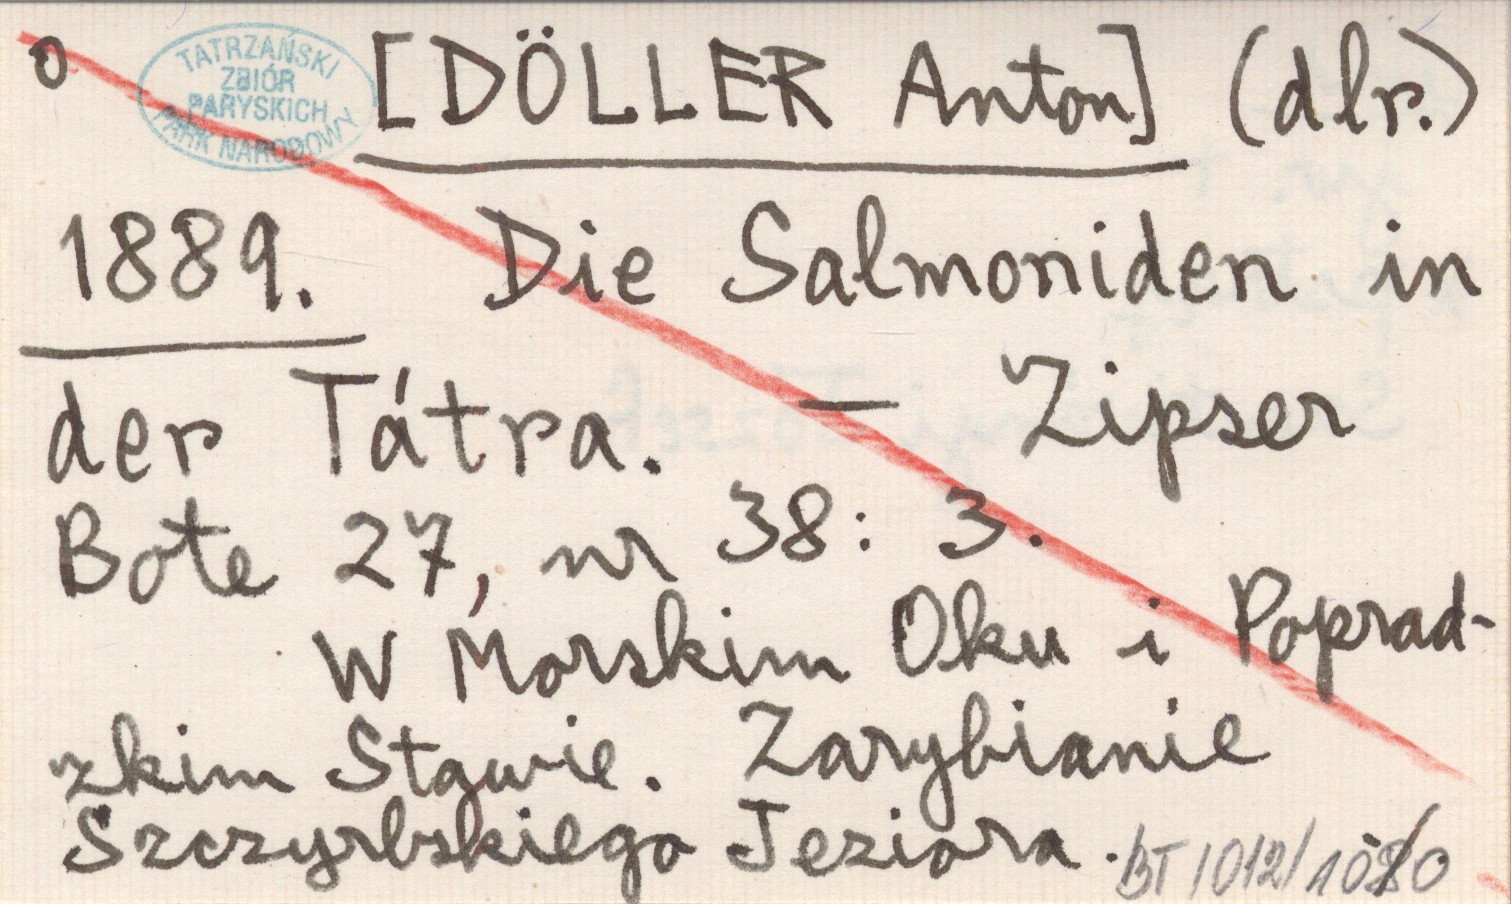 o
TATRZAŃSKI
ZBIÓR
PARYSKICH
PARK NARODOWY
[DÖLLER Anton] (dlr.)
1889. Die Salmoniden in
der Tátra. — Zipser
Bote 27, nr 38: 3.
W Morskim Oku i Poprad-
zkim Stawie. Zarybianie
Szczyrbskiego Jeziora.
BT 1012/